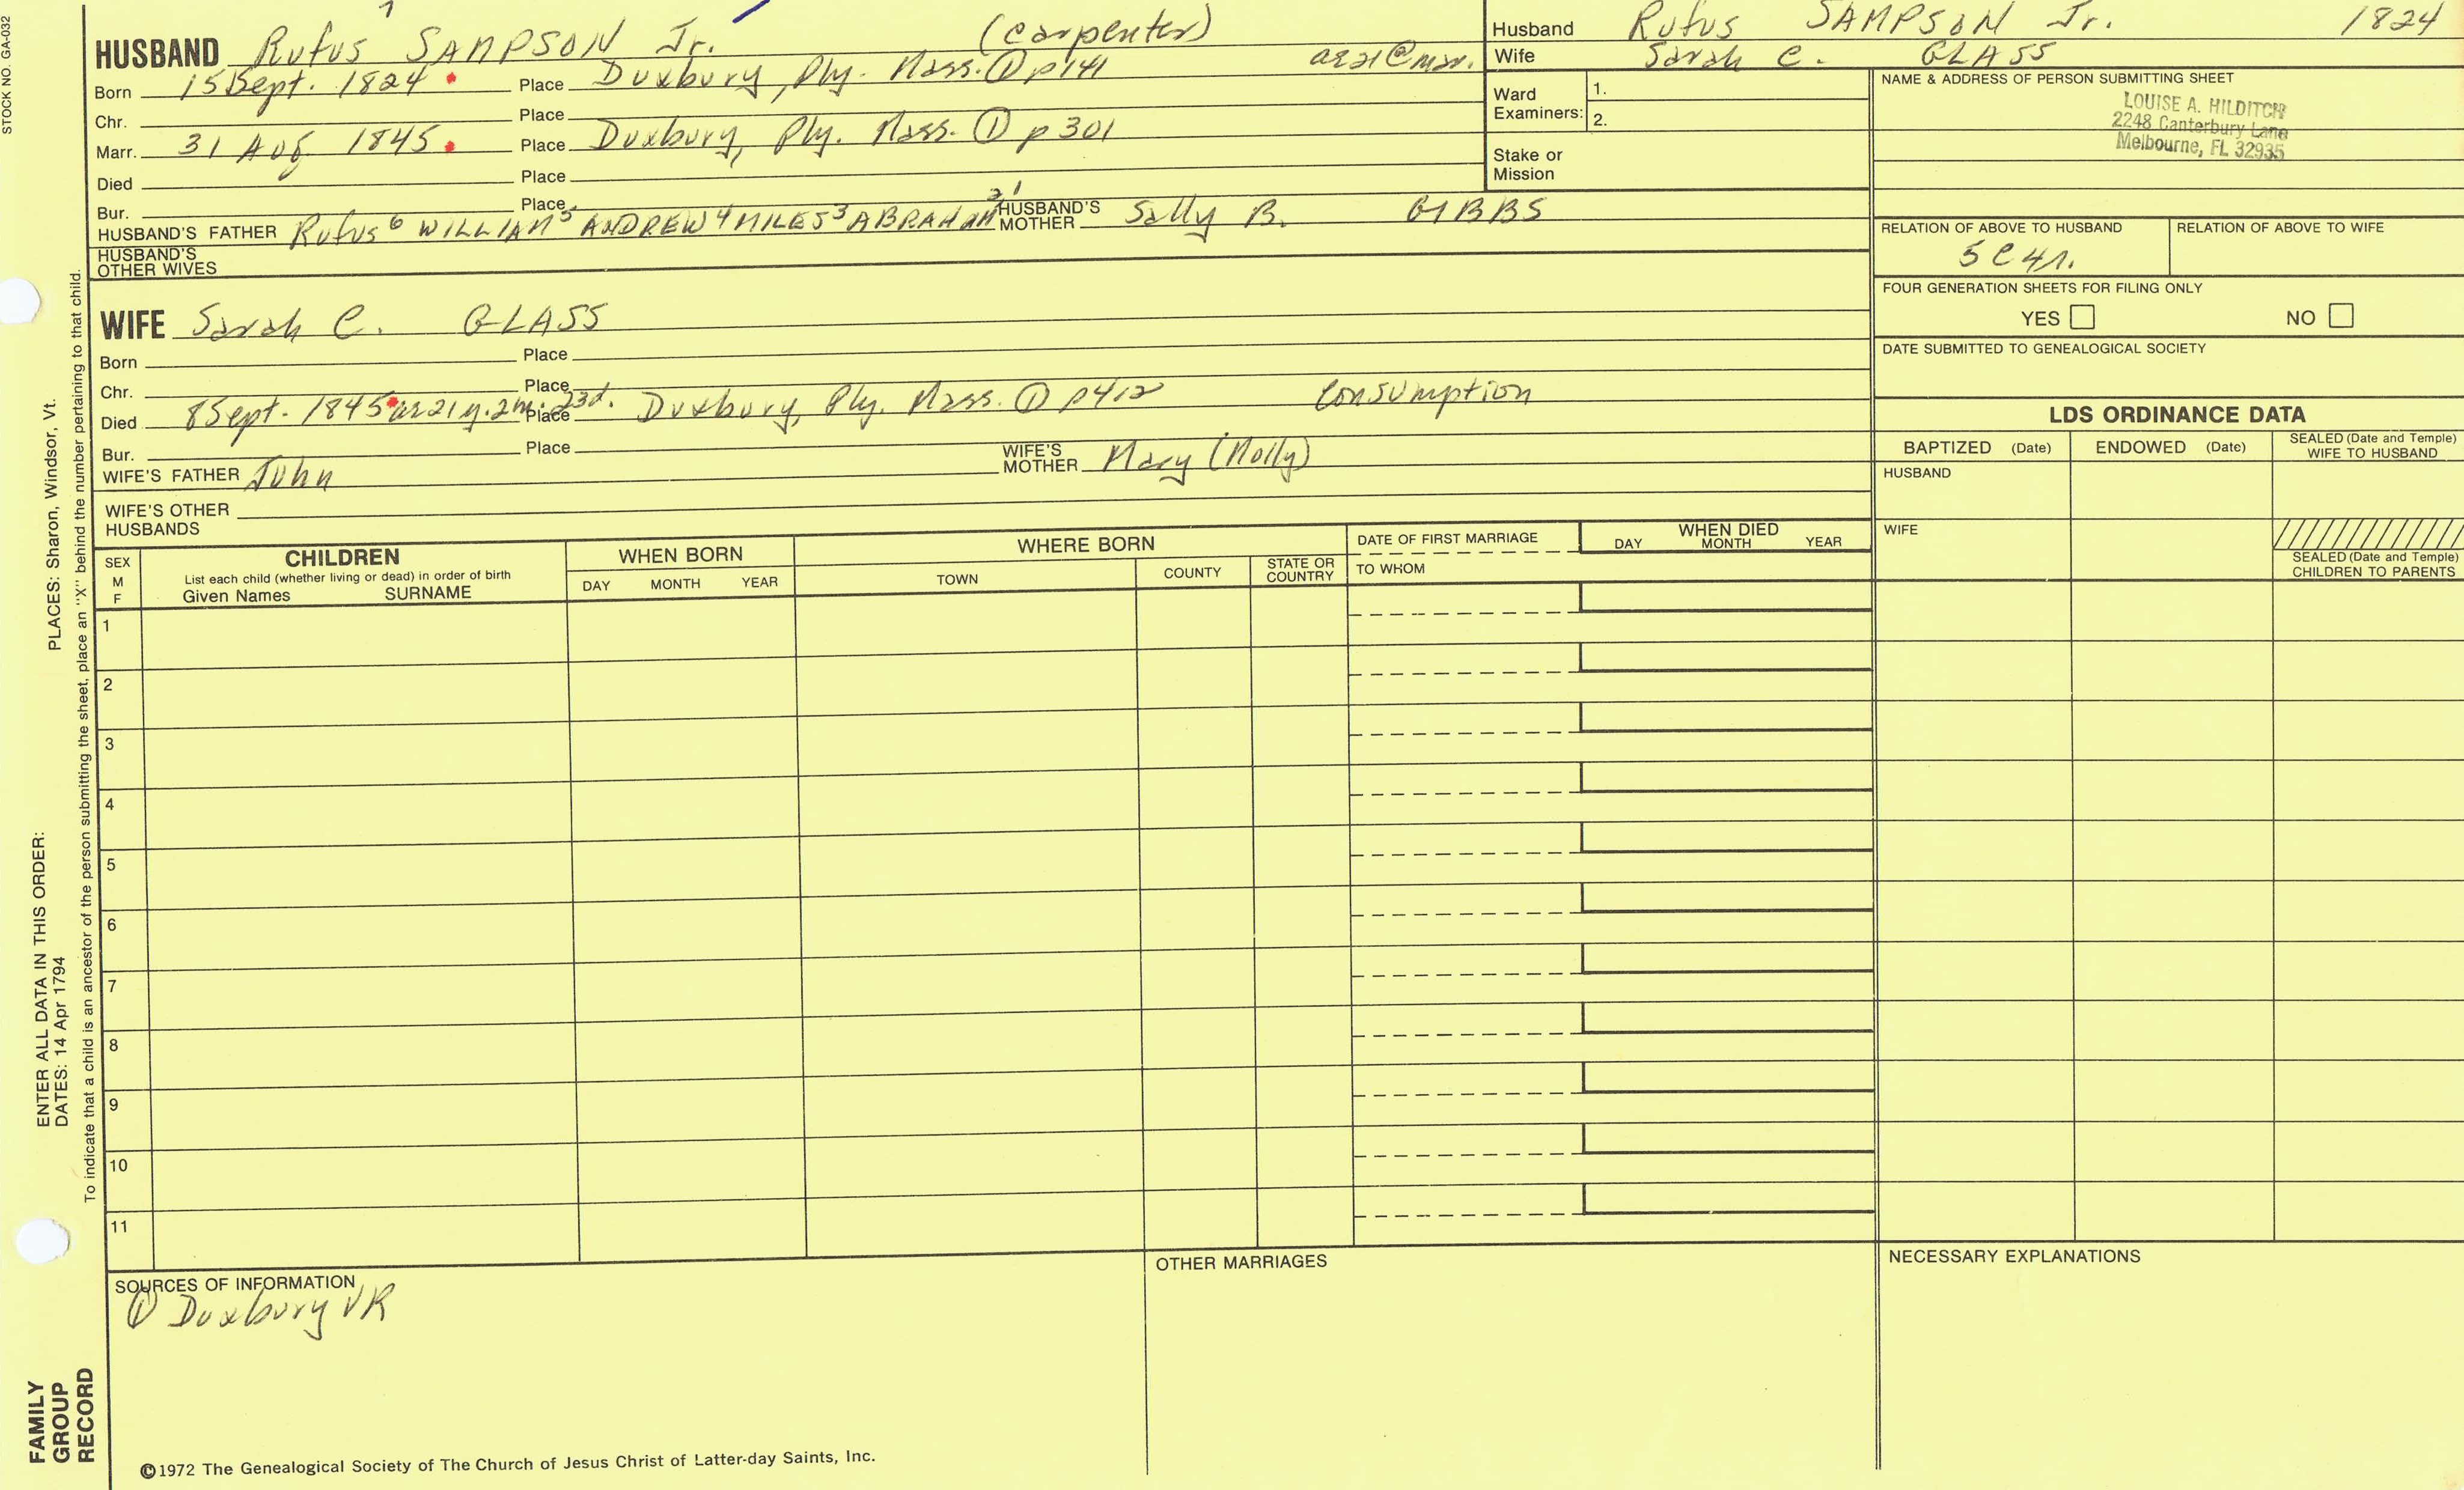 STOCK NO. GA-032
7
HUSBAND Rufus SAMPSON Jr. (carpenter)
Born 15 Sept. 1824 Place Duxbury, Ply. Mass. ① p141 ae 21 @ mar.
Chr. Place
Marr. 31 Aug 1845 Place Duxbury, Ply. Mass. ① p 301
Died Place
Bur. Place
HUSBAND'S FATHER Rufus 6 WILLIAM 5 ANDREW 4 MILES 3 ABRAHAM 2 1 HUSBAND'S MOTHER Sally B. GIBBS
HUSBAND'S OTHER WIVES
WIFE Sarah C. GLASS
Born Place
Chr. Place
Died 8 Sept. 1845 ae 21 y. 2 m. 23 d. Place Duxbury, Ply. Mass. ① p412 Consumption
Bur. Place
WIFE'S FATHER John WIFE'S MOTHER Mary (Molly)
WIFE'S OTHER HUSBANDS
Husband Rufus SAMPSON Jr. 1824
Wife Sarah C. GLASS
Ward Examiners: 1.
2.
Stake or Mission
NAME & ADDRESS OF PERSON SUBMITTING SHEET
LOUISE A. HILDITCH
2248 Canterbury Lane
Melbourne, FL 32935
RELATION OF ABOVE TO HUSBAND RELATION OF ABOVE TO WIFE
5C4r.
FOUR GENERATION SHEETS FOR FILING ONLY
YES NO
DATE SUBMITTED TO GENEALOGICAL SOCIETY
LDS ORDINANCE DATA
BAPTIZED (Date) ENDOWED (Date) SEALED (Date and Temple) WIFE TO HUSBAND
HUSBAND
WIFE
SEALED (Date and Temple) CHILDREN TO PARENTS
SEX M F
CHILDREN
List each child (whether living or dead) in order of birth
Given Names SURNAME
WHEN BORN
DAY MONTH YEAR
WHERE BORN
TOWN COUNTY STATE OR COUNTRY
DATE OF FIRST MARRIAGE
TO WHOM
WHEN DIED
DAY MONTH YEAR
1
2
3
4
5
6
7
8
9
10
11
SOURCES OF INFORMATION
① Duxbury VR
OTHER MARRIAGES
NECESSARY EXPLANATIONS
©1972 The Genealogical Society of The Church of Jesus Christ of Latter-day Saints, Inc.
FAMILY
GROUP
RECORD
ENTER ALL DATA IN THIS ORDER:
DATES: 14 Apr 1794
PLACES: Sharon, Windsor, Vt.
To indicate that a child is an ancestor of the person submitting the sheet, place an "X" behind the number pertaining to that child.